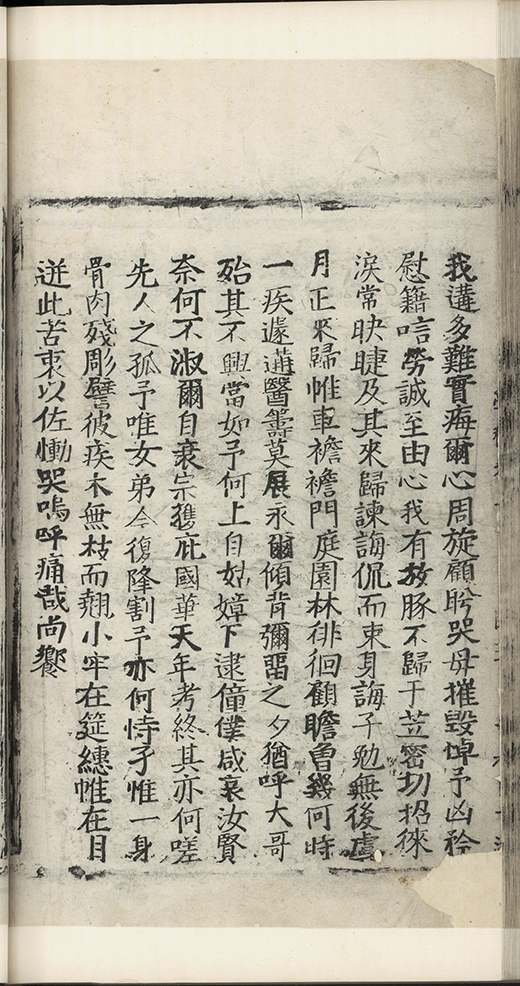 我遘多難實痗爾心周旋顧盻哭毋摧毀悼予凶矜
慰籍唁勞誠至由心我有放豚不歸于苙密切招徠
淚常眏睫及其來歸諫誨侃而束身誨子勉無後虞
月正來歸帷車襜襜門庭園林徘徊顧瞻曾幾何時
一疾遽遘醫籌莫展永爾傾背彌留之夕猶呼大哥
殆其不興當如予何上自姑嫜下逮僮僕咸哀汝賢
奈何不淑爾自衰宗獲庇國華天年考終其亦何嗟
先人之孤予唯女弟今復降割予亦何恃孑惟一身
骨肉殘彫譬彼疾木無枝而翹小牢在筵繐帷在目
迸此苦衷以佐慟哭嗚呼痛哉尚饗